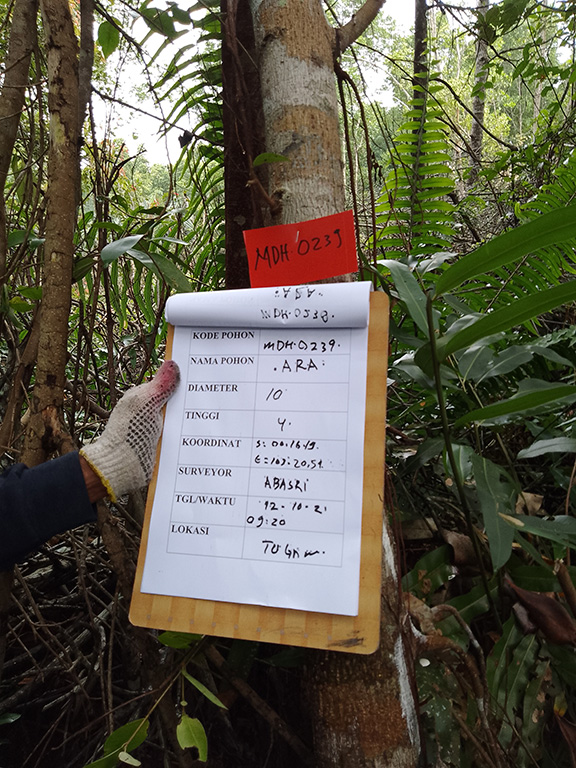 MDH 0239
MDH.0238.
KODE POHON MDH.0239.
NAMA POHON .ARA.
DIAMETER 10
TINGGI 4.
KOORDINAT S: 00.16.19.
E=103.20,51.
SURVEYOR ABASRI
TGL/WAKTU 12-10-21
09:20
LOKASI